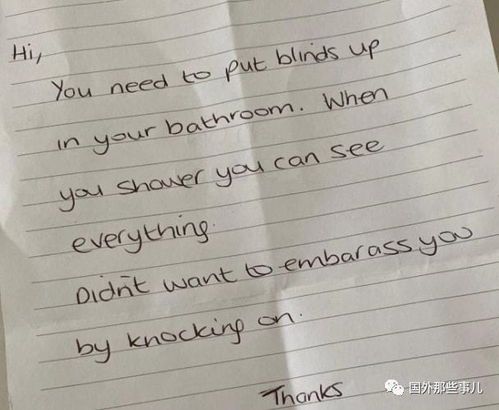 Hi,
You need to put blinds up
in your bathroom. When
you shower you can see
everything.
Didn't want to embarass you
by knocking on.
Thanks
国外那些事儿